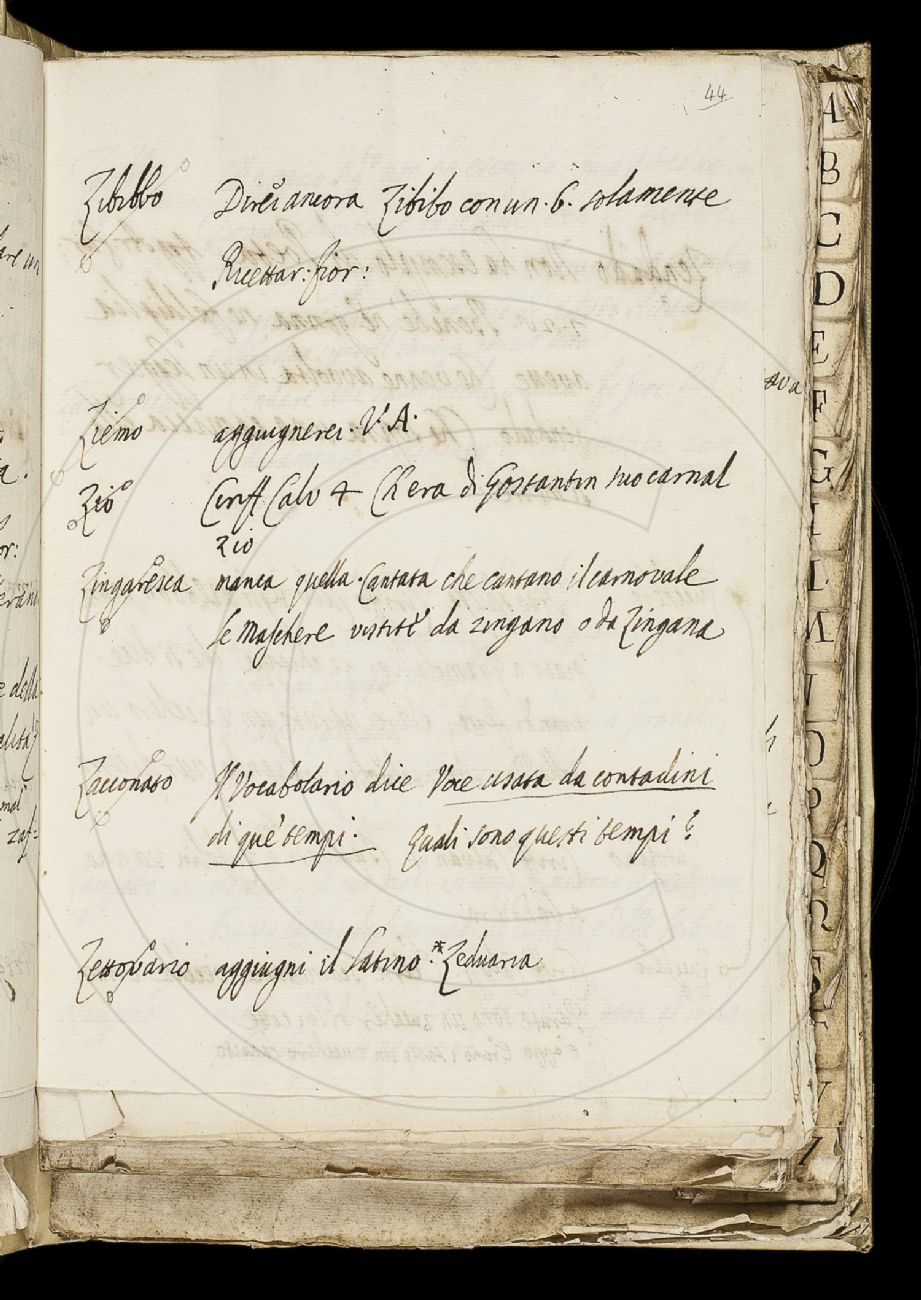 44
Zibibbo Direi ancora Zibibo con un . b . solamente
Ricettar: fior:
Ziemo aggiugnerei . V. A.
Zio Ciriff. Calv 4 Ch'era di Gostantin suo carnal
zio
Zingaresca manca quella . Cantata che cantano il carnovale
le Maschere vestite da zingano o da Zingana
Zacconato Il Vocabolario dice Voce usata da contadini
di que' tempi . Quali sono questi tempi ?
Zettovario aggiugni il Latino .* Zeduaria
A
B
C
D
E
F
G
I
L
M
N
O
P
Q
R
S
T
V
Z